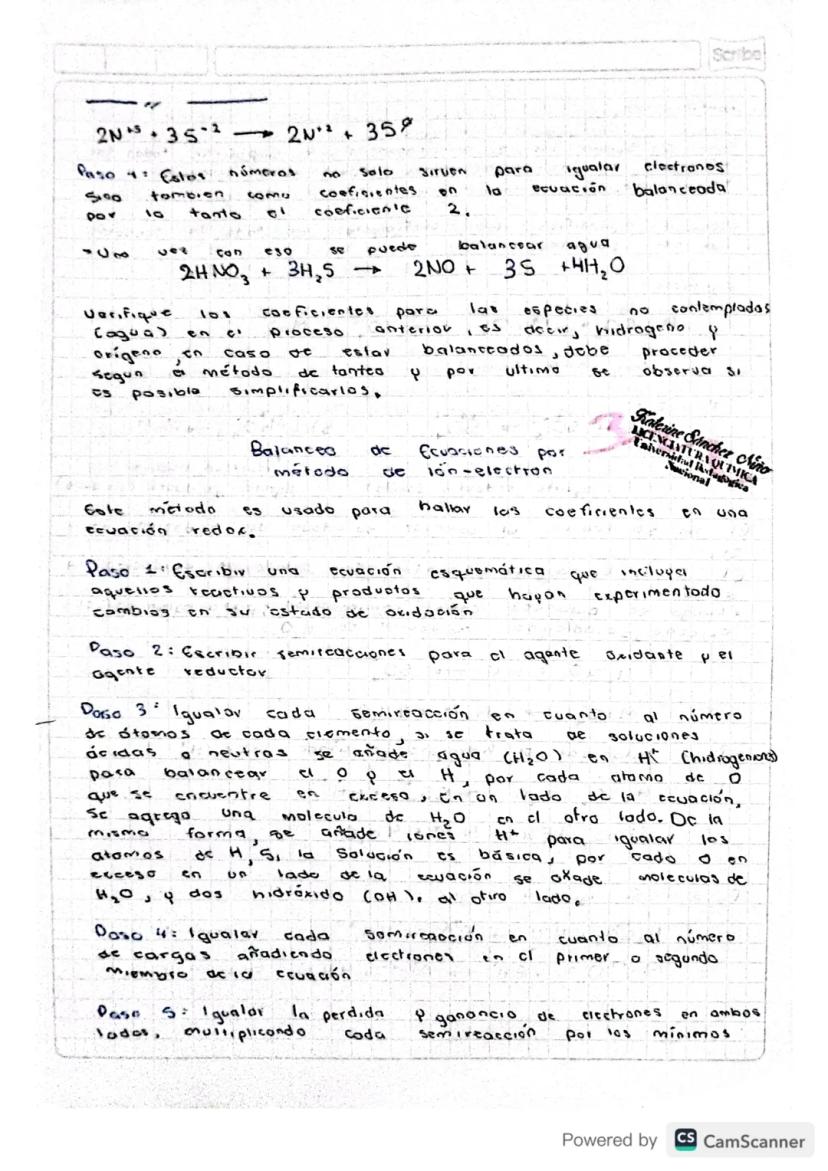 Scribe
2N⁺⁵ + 3S⁻² → 2N⁺² + 3S⁰
Paso 4: Estos números no solo sirven para igualar electrones
sino tambien como coeficientes en la ecuación balanceada
por lo tanto el coeficiente 2.
- Una vez con eso se puede balancear agua
2HNO₃ + 3H₂S → 2NO + 3S + 4H₂O
Verifique los coeficientes para las especies no contemplados
(agua) en el proceso anterior, es decir, hidrogeno y
origeno, en caso de estar balanceados, debe proceder
segun el método de tanteo y por ultimo se observa si
es posible simplificarlos.
Balanceo de Ecuaciones por
método de ión-electron
Katerine Sánchez Niño
LICENCIATURA QUIMICA
Universidad Pedagógica
Nacional
Este método es usado para hallar los coeficientes en una
ecuación redox.
Paso 1: Escribir una ecuación esquemática que incluya
aquellos reactivos y productos que hayan experimentado
cambios en su estado de oxidación
Paso 2: Escribir semireacciones para el agente oxidante y el
agente reductor
Paso 3: Igualar cada semireacción en cuanto al número
de átomos de cada elemento, si se trata de soluciones
ácidas o neutras se añade agua (H₂O) en H⁺ (hidrogeniones)
para balancear el O y el H, por cada atomo de O
que se encuentre en exceso, en un lado de la ecuación,
se agrega una molecula de H₂O en el otro lado. De la
misma forma, se añade iones H⁺ para igualar los
atomos de H, Si la Solución es básica, por cado O en
exceso en un lado de la ecuación se añade moleculas de
H₂O, y dos hidróxido (OH). al otro lado.
Paso 4: Igualar cada semireacción en cuanto al número
de cargas añadiendo electrones en el primer o segundo
miembro de la ecuación
Paso 5: Igualar la perdida y ganancia de electrones en ambos
lados, multiplicando cada semireacción por los mínimos
Powered by CS CamScanner